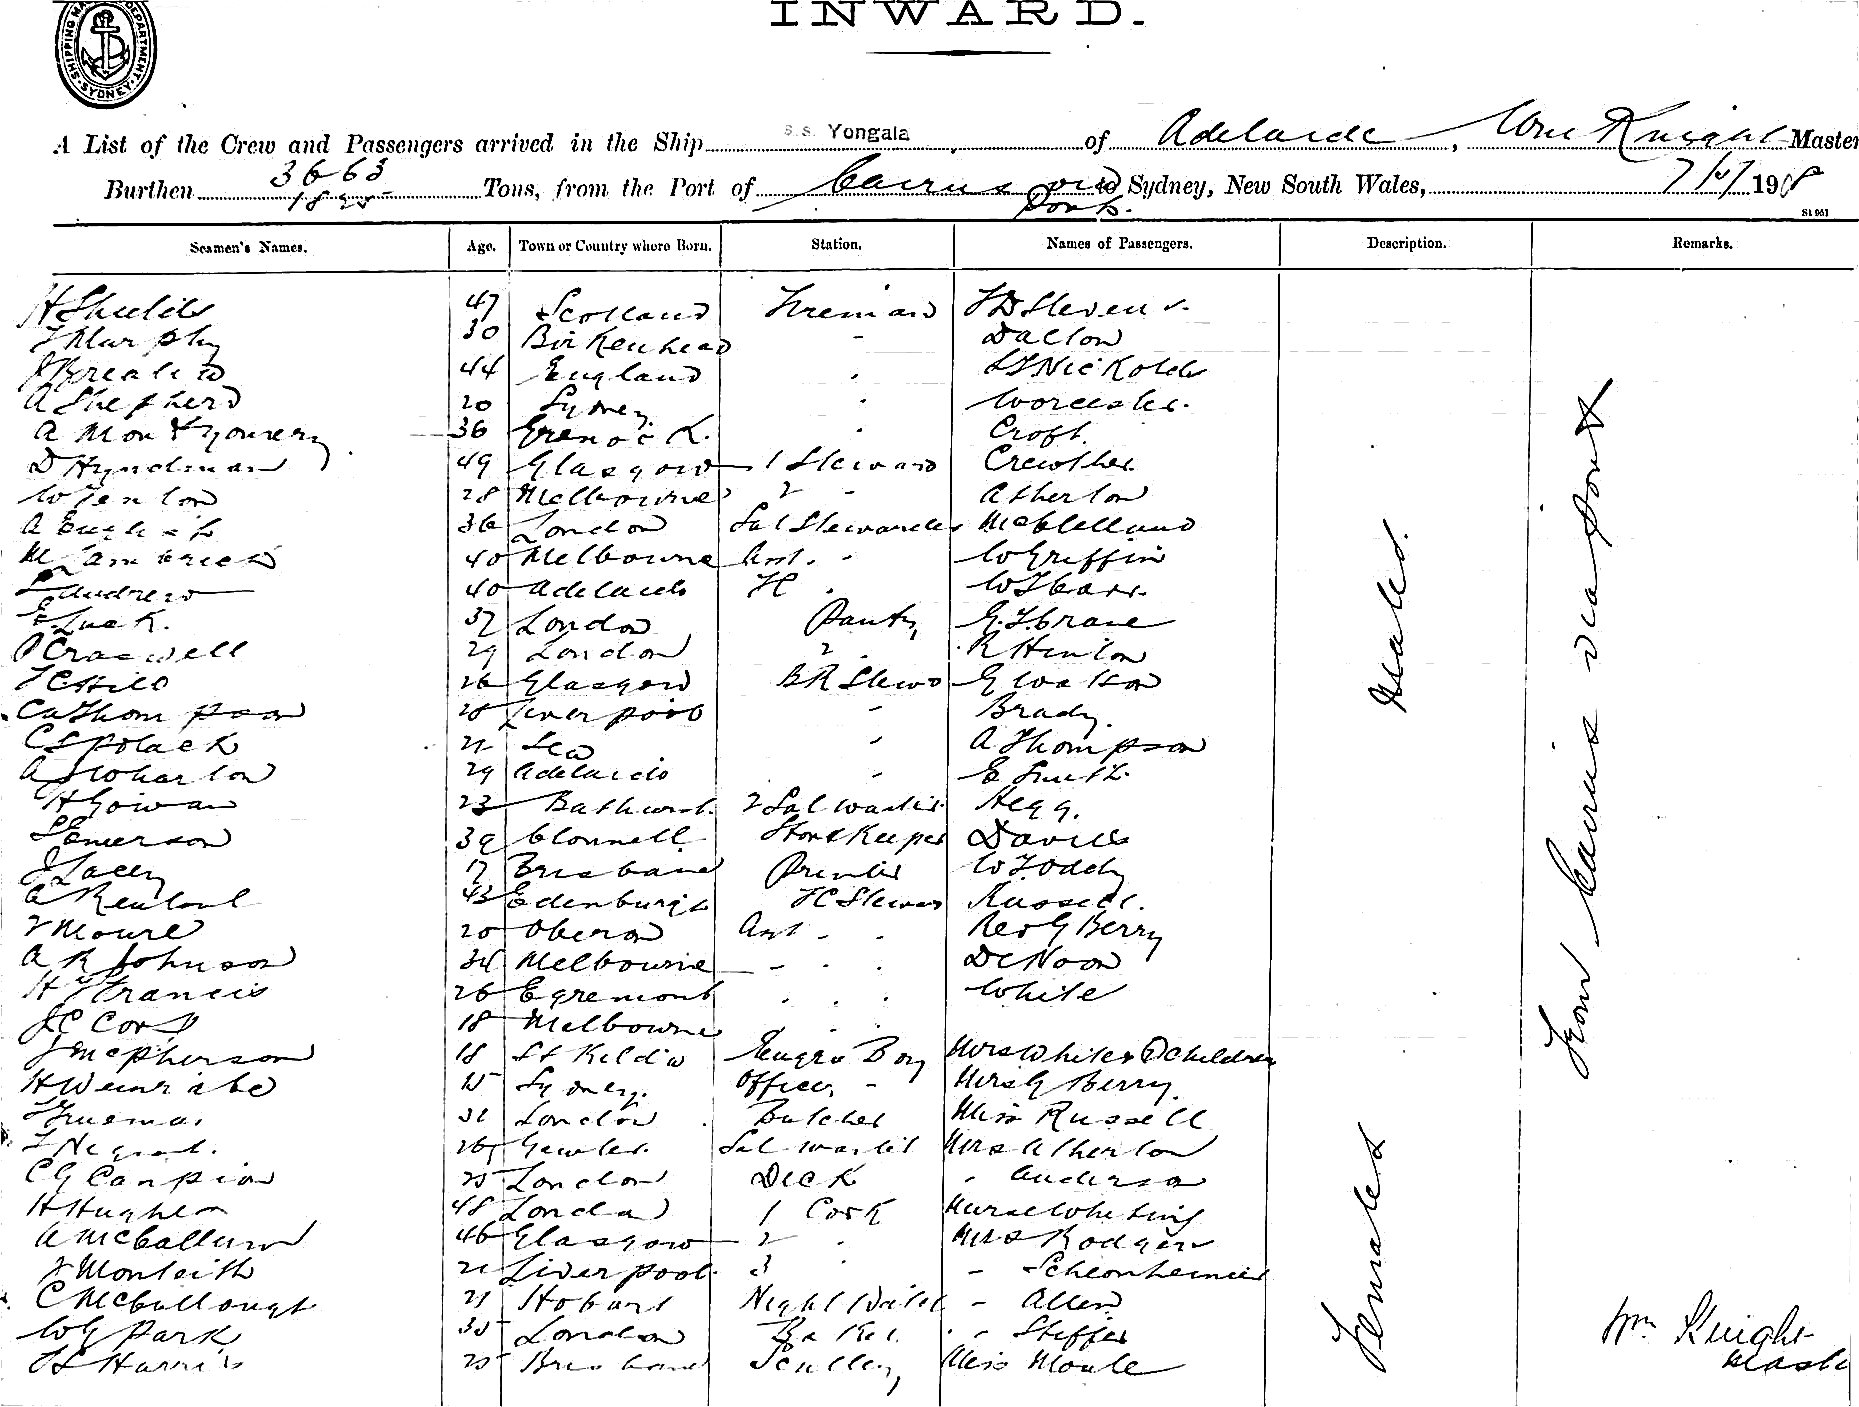 INWARD.
SHIPPING MASTER'S DEPARTMENT. SYDNEY
A List of the Crew and Passengers arrived in the Ship s.s. Yongala of Adelaide, Wm Knight Master
Burthen 3663 Tons, from the Port of Cairns via to Sydney, New South Wales, 7/5/ 1908
1825 Ports.
S1 951
Seamen's Names. Age. Town or Country where Born. Station. Names of Passengers. Description. Remarks.
H Shields 47 Scotland Fireman Stevens
Murphy 30 Birkenhead - Dalton
44 England Nickolds
A Shepherd 20 Sydney Worcester
A Montgomery 36 Grenock Croft
D Hyndman 49 Glasgow 1 Steward Crewther
W Fenton 28 Melbourne 2 - Atherton
A English 36 London Sal Stewardess McClelland
40 Melbourne Asst. - W Griffin
Andrew 40 Adelaide W J Carr
E Luck 37 London Pantry Crane
P Craswell 29 London 2 R Hinton
Hill 26 Glasgow BR Stewd G Watson
C A Thompson 28 Liverpool - Brady
C S Polack Sea A Thompson
A J Wharton 29 Adelaide E Smith
H Gowan 23 Bathurst 2 Sal waiter Hegg
Emerson 39 Clonmell Store Keeper Davies
J Lacey 17 Brisbane Printer W Toddy
43 Edenburgh Steward Russell
20 Oberon Asst Rev G Berry
A R Johnson 34 Melbourne - De Noon
H Francis 26 Egremont White
J C 18 Melbourne
J McPherson 18 St Kilda Boy Mrs White & children
H 15 Sydney Officers - Mrs G Berry
Trueman London Butcher Miss Russell
26 Gawler Sal waiter Mrs Atherton
C G Canpion 25 London Deck - Anderson
H Hughes 48 London 1 Cook Nurse Whiting
A McCallum 46 Glasgow 2 Mrs Rodgers
Monteith 21 Liverpool 3 -
C McCullough 21 Hobart Night Watch - Allen
W G Park London Baker - Steffes
Harris 25 Brisbane Scullery Miss Moule
Males.
Females
From Cairns via Ports
Wm Knight
Master